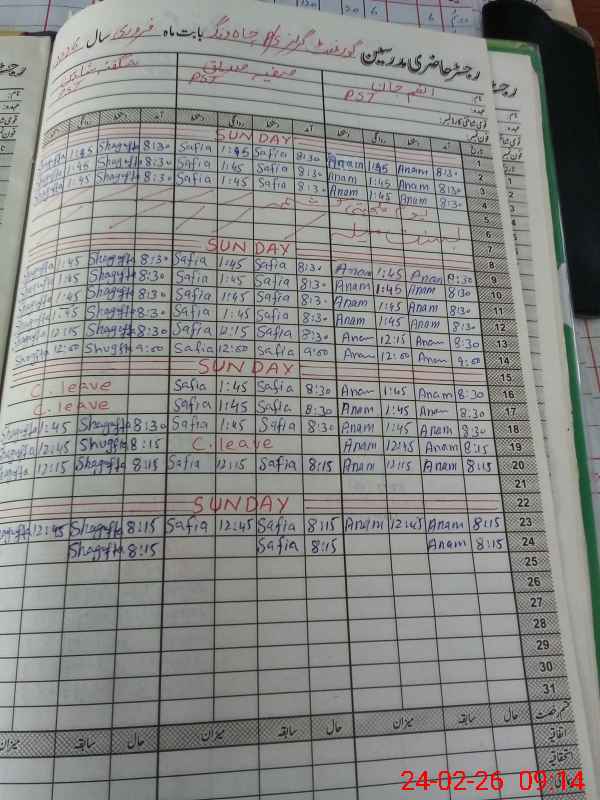 رجسٹر حاضری مدرسین گورنمنٹ گرلز P/S چاہ دنگ بابت ماہ فروری سال 2026
نام: انعم جان صفیہ صدیق شگفتہ شاہین
عہدہ: PST PST PST
تاریخ آمد دستخط روانگی دستخط آمد دستخط روانگی دستخط آمد دستخط روانگی
SUNDAY 1
Shagufta 1:45 Shagufta 8:30 Safia 1:45 Safia 8:30 Anam 1:45 Anam 8:30 2
Shagufta 1:45 Shagufta 8:30 Safia 1:45 Safia 8:30 Anam 1:45 Anam 8:30 3
Shagufta 1:45 Shagufta 8:30 Safia 1:45 Safia 8:30 Anam 1:45 Anam 8:30 4
یوم یکجہتی کشمیر 5
بسنت میلہ 6
7
SUNDAY 8
Shagufta 1:45 Shagufta 8:30 Safia 1:45 Safia 8:30 Anam 1:45 Anam 8:30 9
Shagufta 1:45 Shagufta 8:30 Safia 1:45 Safia 8:30 Anam 1:45 Anam 8:30 10
Shagufta 1:45 Shagufta 8:30 Safia 1:45 Safia 8:30 Anam 1:45 Anam 8:30 11
Shagufta 1:45 Shagufta 8:30 Safia 1:45 Safia 8:30 Anam 1:45 Anam 8:30 12
Shagufta 12:15 Shagufta 8:30 Safia 12:15 Safia 8:30 Anam 12:15 Anam 8:30 13
Shagufta 12:00 Shagufta 9:00 Safia 12:00 Safia 9:00 Anam 12:00 Anam 9:00 14
SUNDAY 15
C. leave Safia 1:45 Safia 8:30 Anam 1:45 Anam 8:30 16
C. leave Safia 1:45 Safia 8:30 Anam 1:45 Anam 8:30 17
Shagufta 1:45 Shagufta 8:30 Safia 1:45 Safia 8:30 Anam 1:45 Anam 8:30 18
Shagufta 12:45 Shagufta 8:15 C. leave Anam 12:45 Anam 8:15 19
Shagufta 12:15 Shagufta 8:15 Safia 12:15 Safia 8:15 Anam 12:15 Anam 8:15 20
21
SUNDAY 22
Shagufta 12:45 Shagufta 8:15 Safia 12:45 Safia 8:15 Anam 12:45 Anam 8:15 23
Shagufta 8:15 Safia 8:15 Anam 8:15 24
25
26
27
28
29
30
31
قسم رخصت حال سابقہ میزان حال سابقہ میزان حال سابقہ میزان
اتفاقیہ
استحقاقیہ
24-02-26 09:14